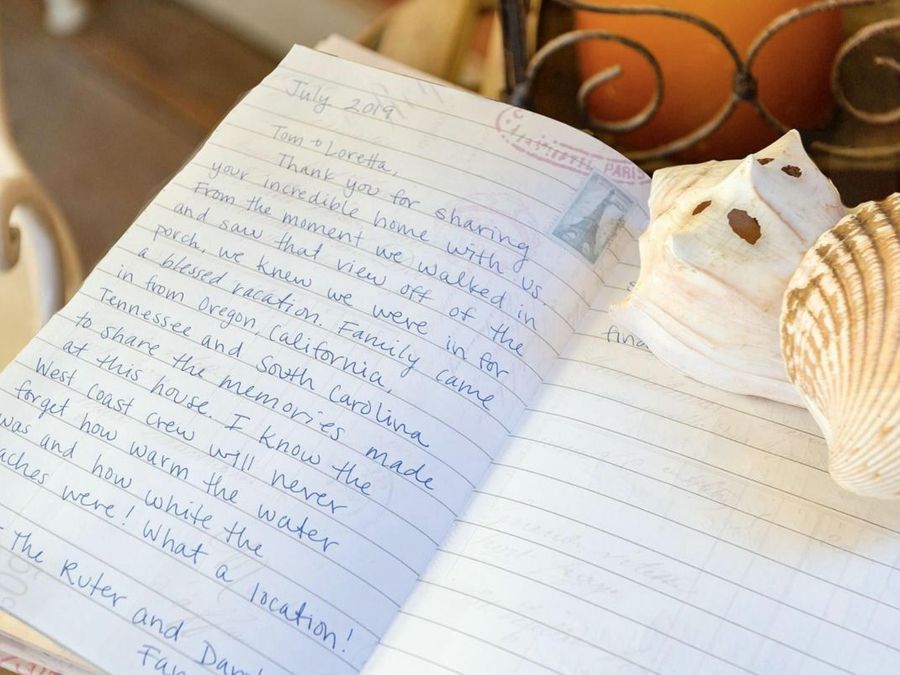 July 2019
Tom + Loretta,
Thank you for sharing
your incredible home with us.
From the moment we walked in
and saw that view off of the
porch, we knew we were in for
a blessed vacation. Family came
in from Oregon, California,
Tennessee and South Carolina
to share the memories made
at this house. I know the
West Coast crew will never
forget how warm the water
was and how white the
aches were! What a location!
- The Ruter and
Fam
PARIS